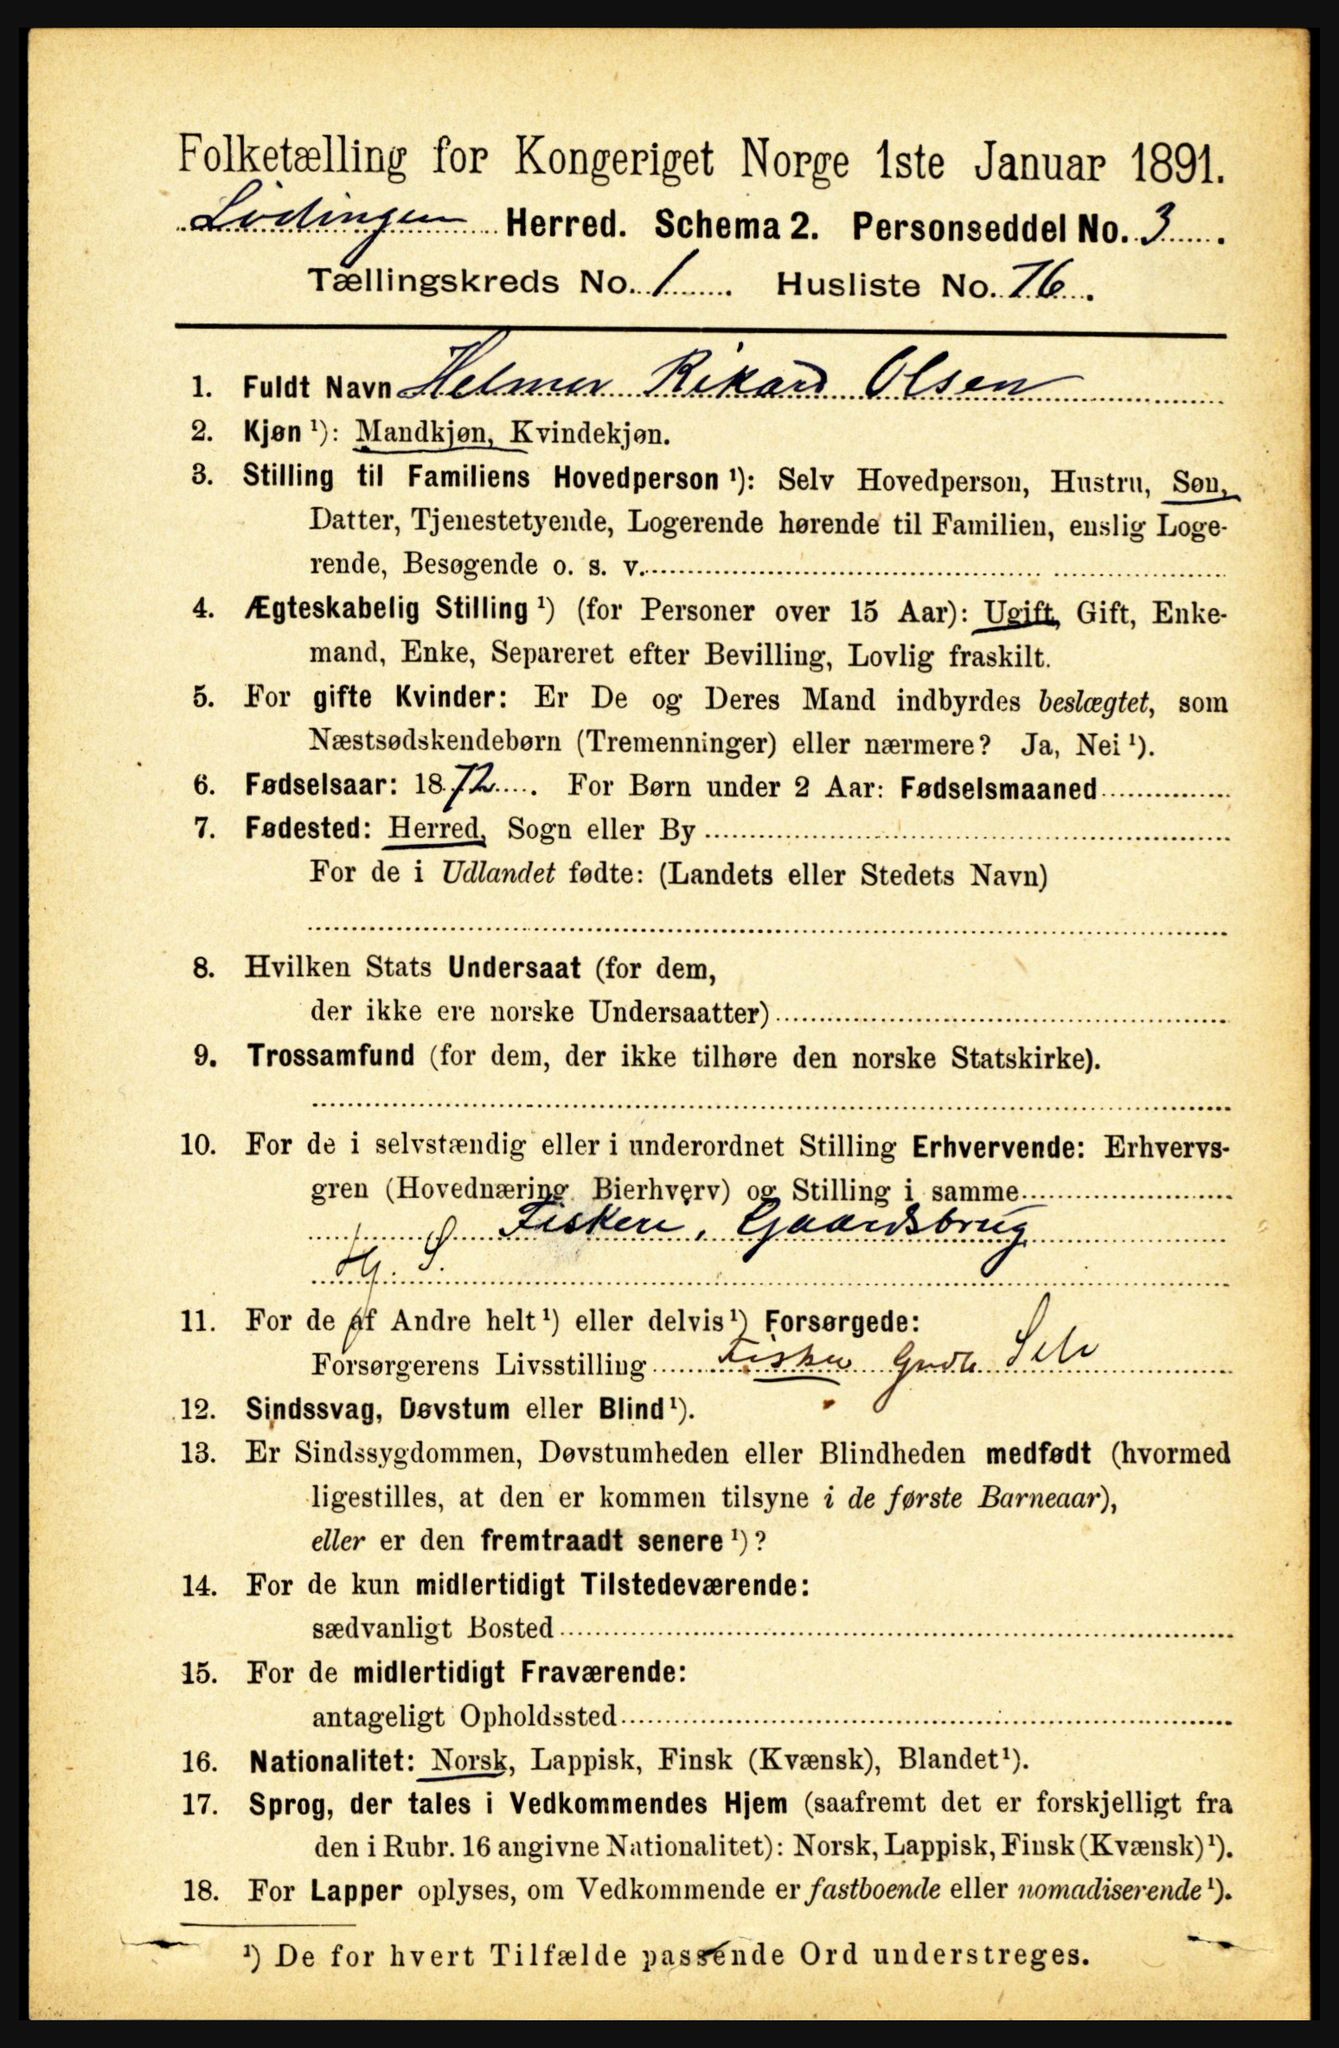 Folketælling for Kongeriget Norge 1ste Januar 1891.
Lødingen Herred. Schema 2. Personseddel No. 3.
Tællingskreds No. 1. Husliste No. 76.
1. Fuldt Navn Helmer Rikard Olsen
2. Kjøn ¹): Mandkjøn, Kvindekjøn.
3. Stilling til Familiens Hovedperson ¹): Selv Hovedperson, Hustru, Søn,
Datter, Tjenestetyende, Logerende hørende til Familien, enslig Loge-
rende, Besøgende o. s. v.
4. Ægteskabelig Stilling ¹) (for Personer over 15 Aar): Ugift, Gift, Enke-
mand, Enke, Separeret efter Bevilling, Lovlig fraskilt.
5. For gifte Kvinder: Er De og Deres Mand indbyrdes beslægtet, som
Næstsødskendebørn (Tremenninger) eller nærmere? Ja, Nei ¹).
6. Fødselsaar: 1872. For Børn under 2 Aar: Fødselsmaaned
7. Fødested: Herred, Sogn eller By
For de i Udlandet fødte: (Landets eller Stedets Navn)
8. Hvilken Stats Undersaat (for dem,
der ikke ere norske Undersaatter)
9. Trossamfund (for dem, der ikke tilhøre den norske Statskirke).
10. For de i selvstændig eller i underordnet Stilling Erhvervende: Erhvervs-
gren (Hovednæring, Bierhverv) og Stilling i samme
Fiskeri, Gaardsbrug
S
11. For de af Andre helt ¹) eller delvis ¹) Forsørgede:
Forsørgerens Livsstilling Fisker Gndb Selv
12. Sindssvag, Døvstum eller Blind ¹).
13. Er Sindssygdommen, Døvstumheden eller Blindheden medfødt (hvormed
ligestilles, at den er kommen tilsyne i de første Barneaar),
eller er den fremtraadt senere ¹)?
14. For de kun midlertidigt Tilstedeværende:
sædvanligt Bosted
15. For de midlertidigt Fraværende:
antageligt Opholdssted
16. Nationalitet: Norsk, Lappisk, Finsk (Kvænsk), Blandet ¹).
17. Sprog, der tales i Vedkommendes Hjem (saafremt det er forskjelligt fra
den i Rubr. 16 angivne Nationalitet): Norsk, Lappisk, Finsk (Kvænsk) ¹).
18. For Lapper oplyses, om Vedkommende er fastboende eller nomadiserende ¹).
¹) De for hvert Tilfælde passende Ord understreges.